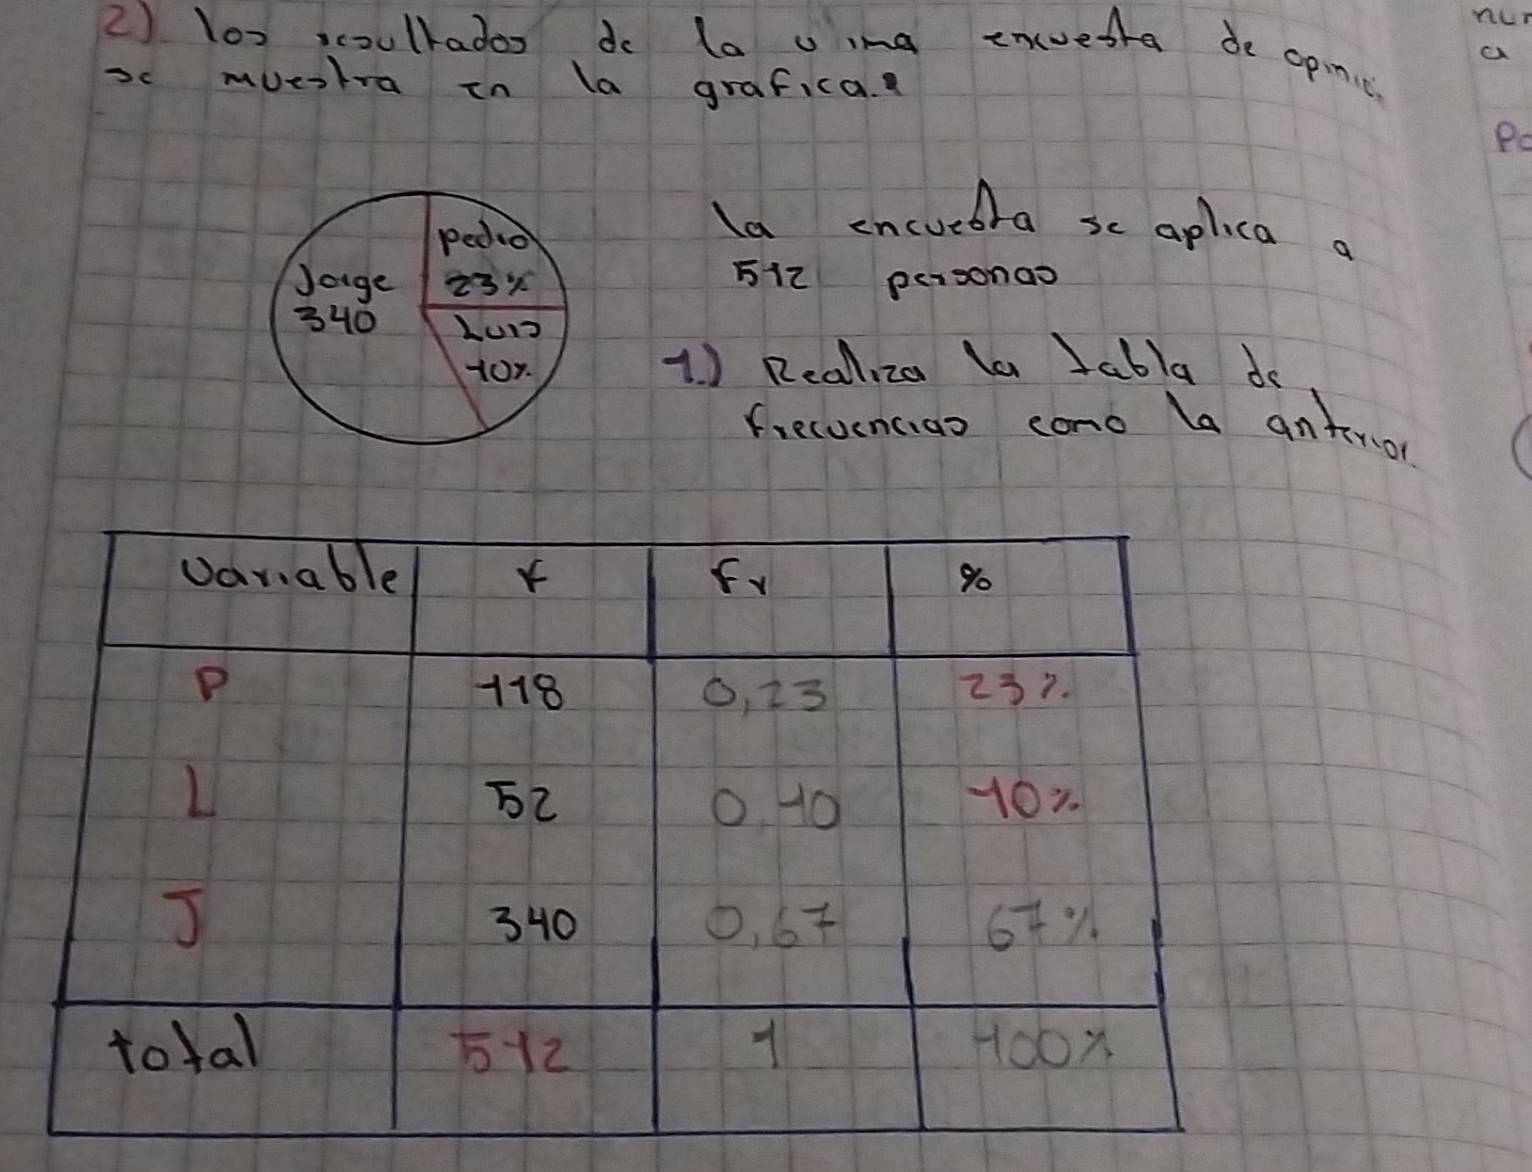 2) los resultados de la encuesta de
se muestra en la grafica.
Pedro
23%
Jorge
340
Luis
10%
la encuesta se aplica a
512 personas
1.) Realiza la tabla de
frecuencias como la anterior
variable f fr %
P 118 0,23 23%
L 52 0,10 10%
J 340 0,67 67%
total 512 1 100%